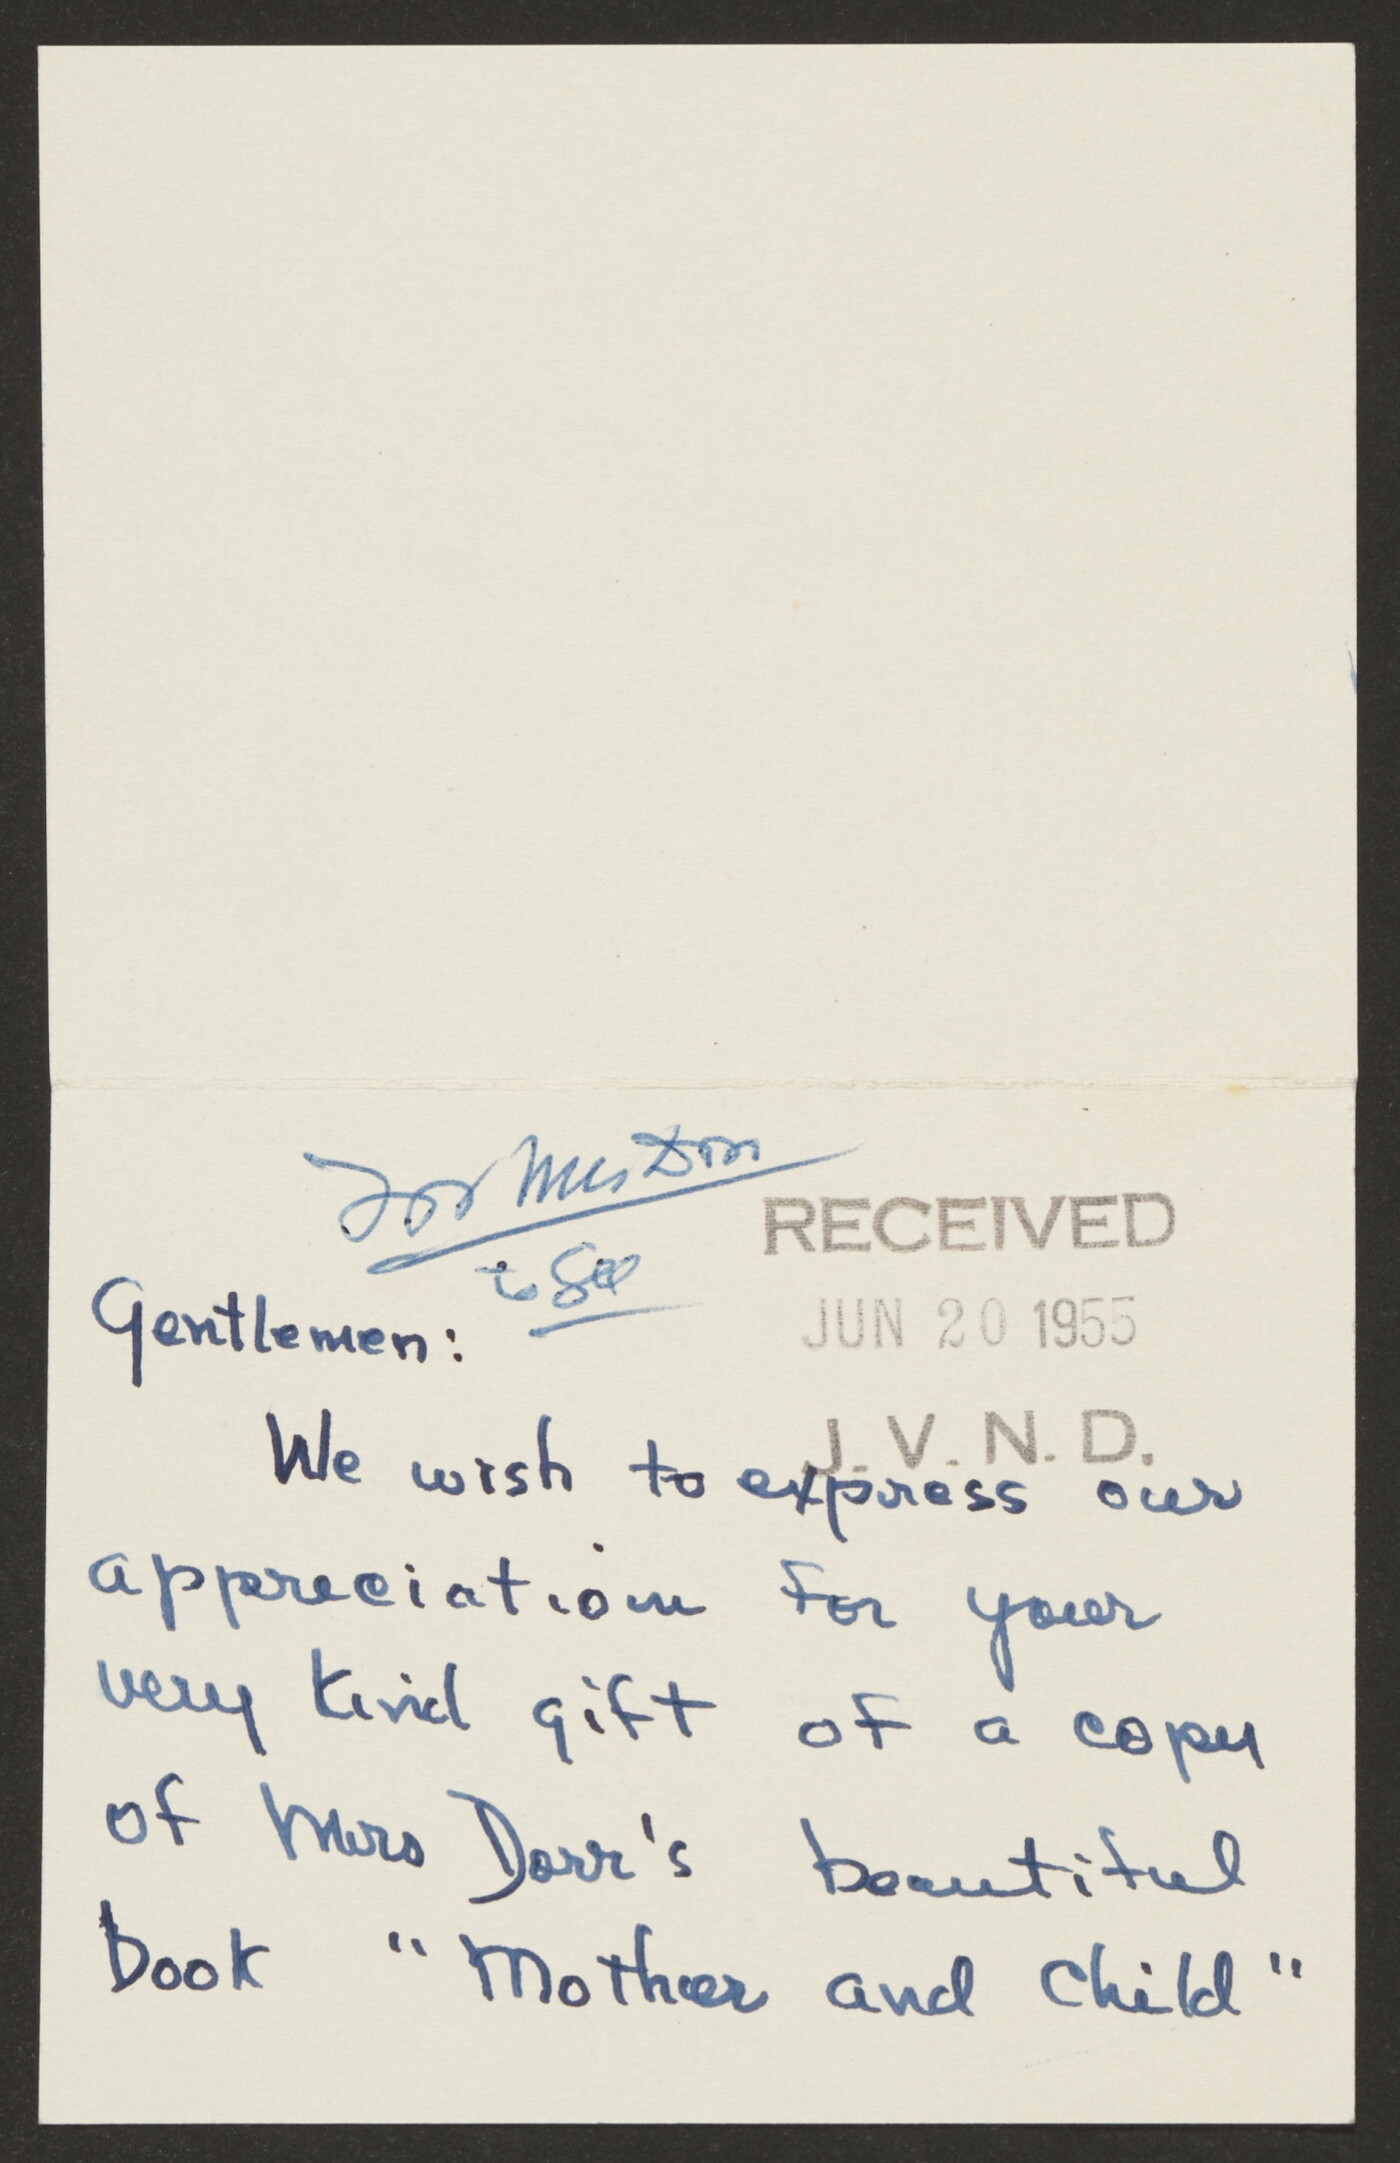 For Mrs Dorr
to see
RECEIVED
JUN 20 1955
J. V. N. D.
Gentlemen:
We wish to express our
appreciation for your
very kind gift of a copy
of Mrs Dorr's beautiful
book "Mother and Child"